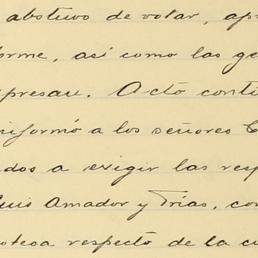 abstuvo de votar, ap
orme, así como las ge
presan. Acto conti
informó a los señores C
dos a exigir las resp
Luis Amador y Trias, con
oteca respecto de la cu